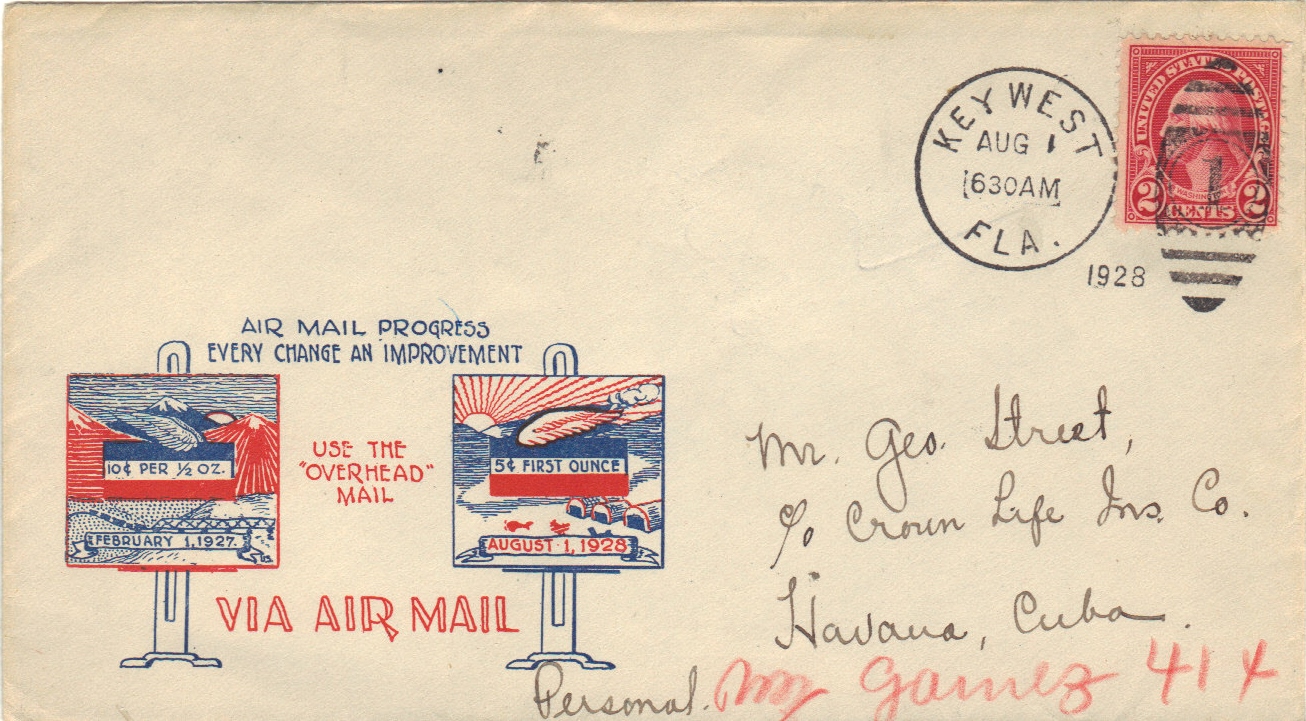 UNITED STATES POSTAGE
WASHINGTON
2 CENTS 2
KEY WEST
AUG 1
630AM
FLA.
1928
1
AIR MAIL PROGRESS
EVERY CHANGE AN IMPROVEMENT
10¢ PER ½ OZ.
FEBRUARY 1, 1927.
USE THE
"OVERHEAD"
MAIL
5¢ FIRST OUNCE
AUGUST 1, 1928
VIA AIR MAIL
Mr. Geo. Street,
c/o Crown Life Ins. Co.
Havana, Cuba.
Personal.
Gamez 414